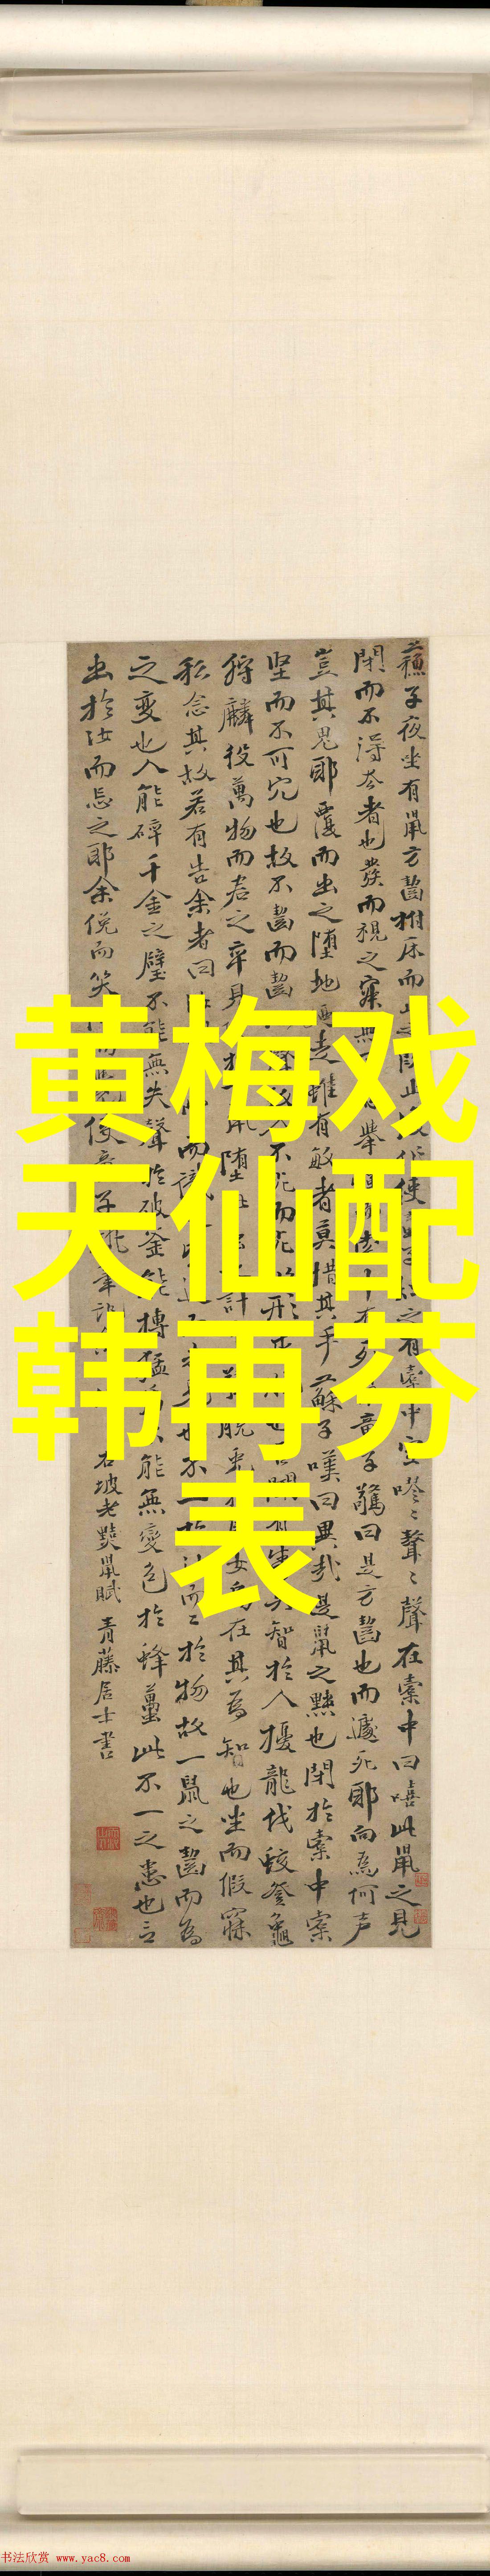 蘇子夜坐有鼠方齧拊床而止之既止復作使有橐中空嘐〻聲〻在橐中曰嘻此鼠之見
閉而不得去者也發而視之寂無舉童子驚曰是方齧也而遽死耶向為何声
豈其鬼耶覆而出之墮地西走雖有敏者莫措其手蘇子嘆曰異哉是鼠之黠也閉於橐中橐
堅而不可穴也故不齧而齧不死而死以形智於人擾龍伐蛟登龜
狩麟役萬物而君之卒見鼠墮計脫兔女烏在其為智也坐而假寐
私念其故若有告余者曰而不一於汝而二於物故一鼠之齧而為
之變也人能碎千金之璧不能無失聲於破釜能搏猛能無變色於蜂蠆此不一之患也言
出於汝而忘之耶余俛而笑使童子執筆
右坡老黠鼠賦 青藤居士書
黄梅戏
天仙配
韩再芬
表
书法欣赏 www.yac8.com